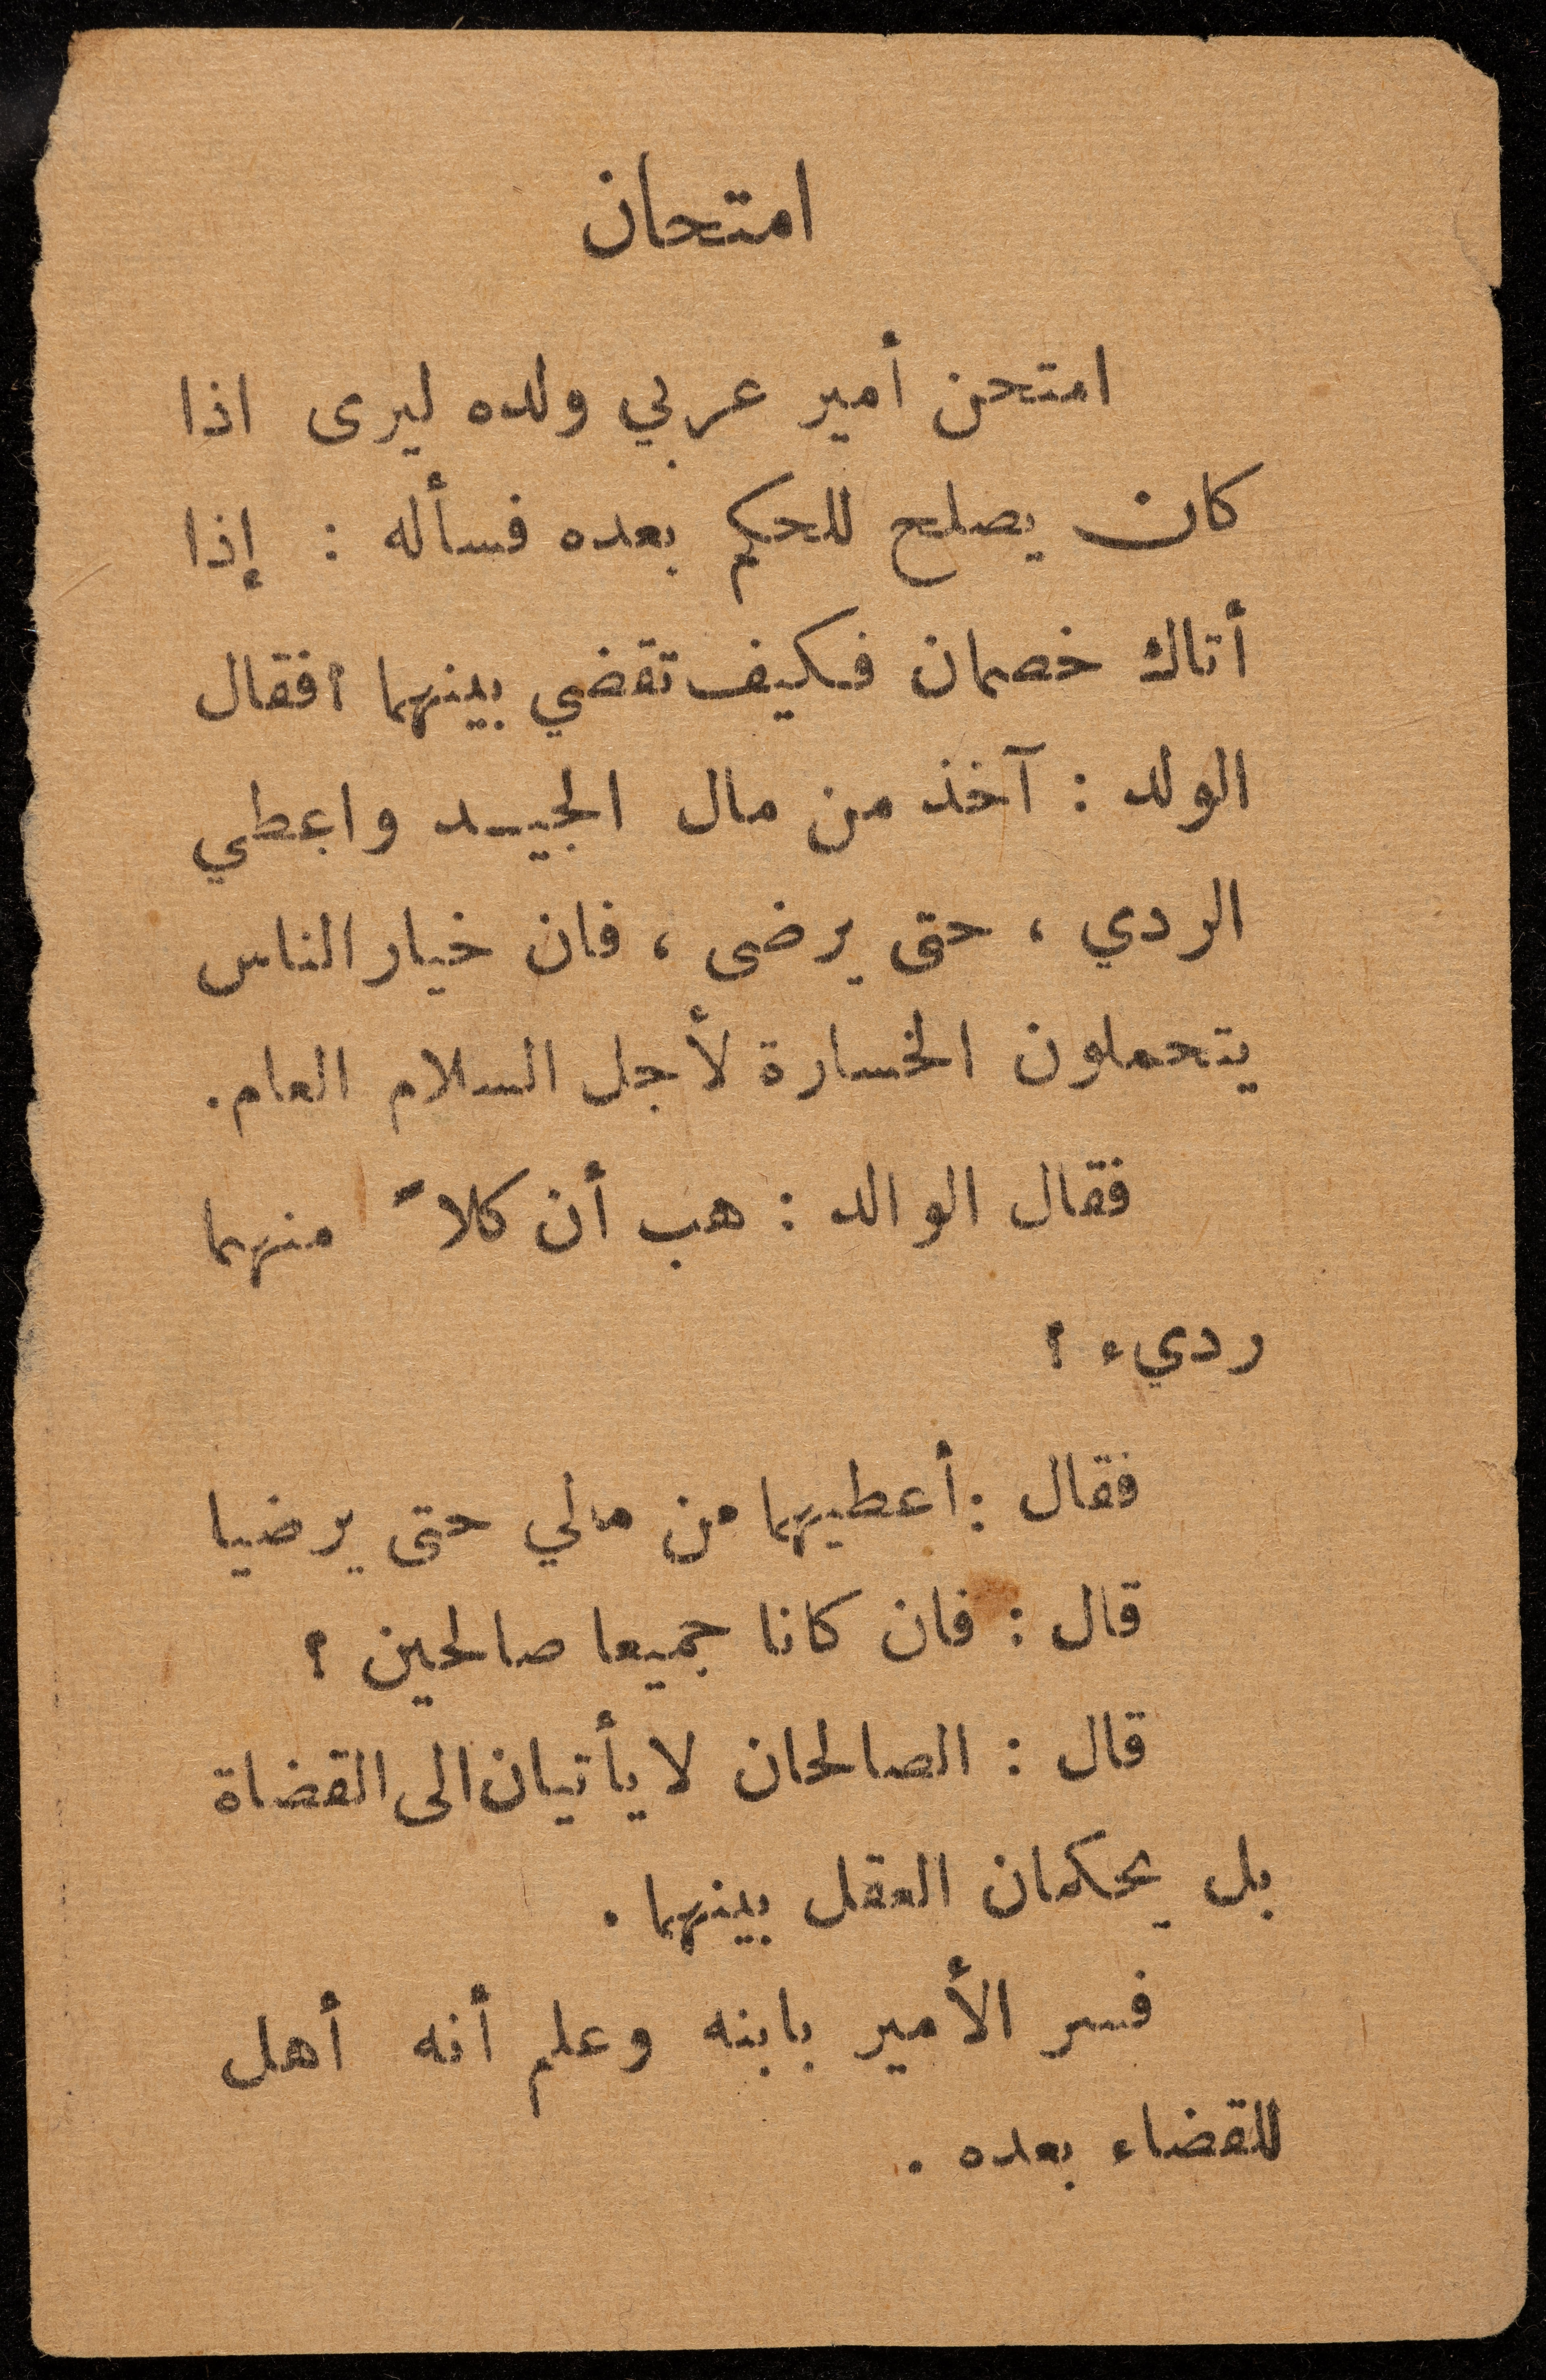 امتحان
امتحن أمير عربي ولده ليرى اذا
كان يصلح للحكم بعده فسأله : إذا
أتاك خصمان فكيف تقضي بينهما ؟ فقال
الولد : آخذ من مال الجيد واعطي
الردي ، حتى يرضى ، فان خيار الناس
يتحملون الخسارة لأجل السلام العام.
فقال الوالد : هب أن كلاً منهما
رديء ؟
فقال : أعطيهما من مالي حتى يرضيا
قال : فان كانا جميعا صالحين ؟
قال : الصالحان لا يأتيان الى القضاة
بل يحكمان العقل بينهما .
فسر الأمير بابنه وعلم أنه أهل
للقضاء بعده .